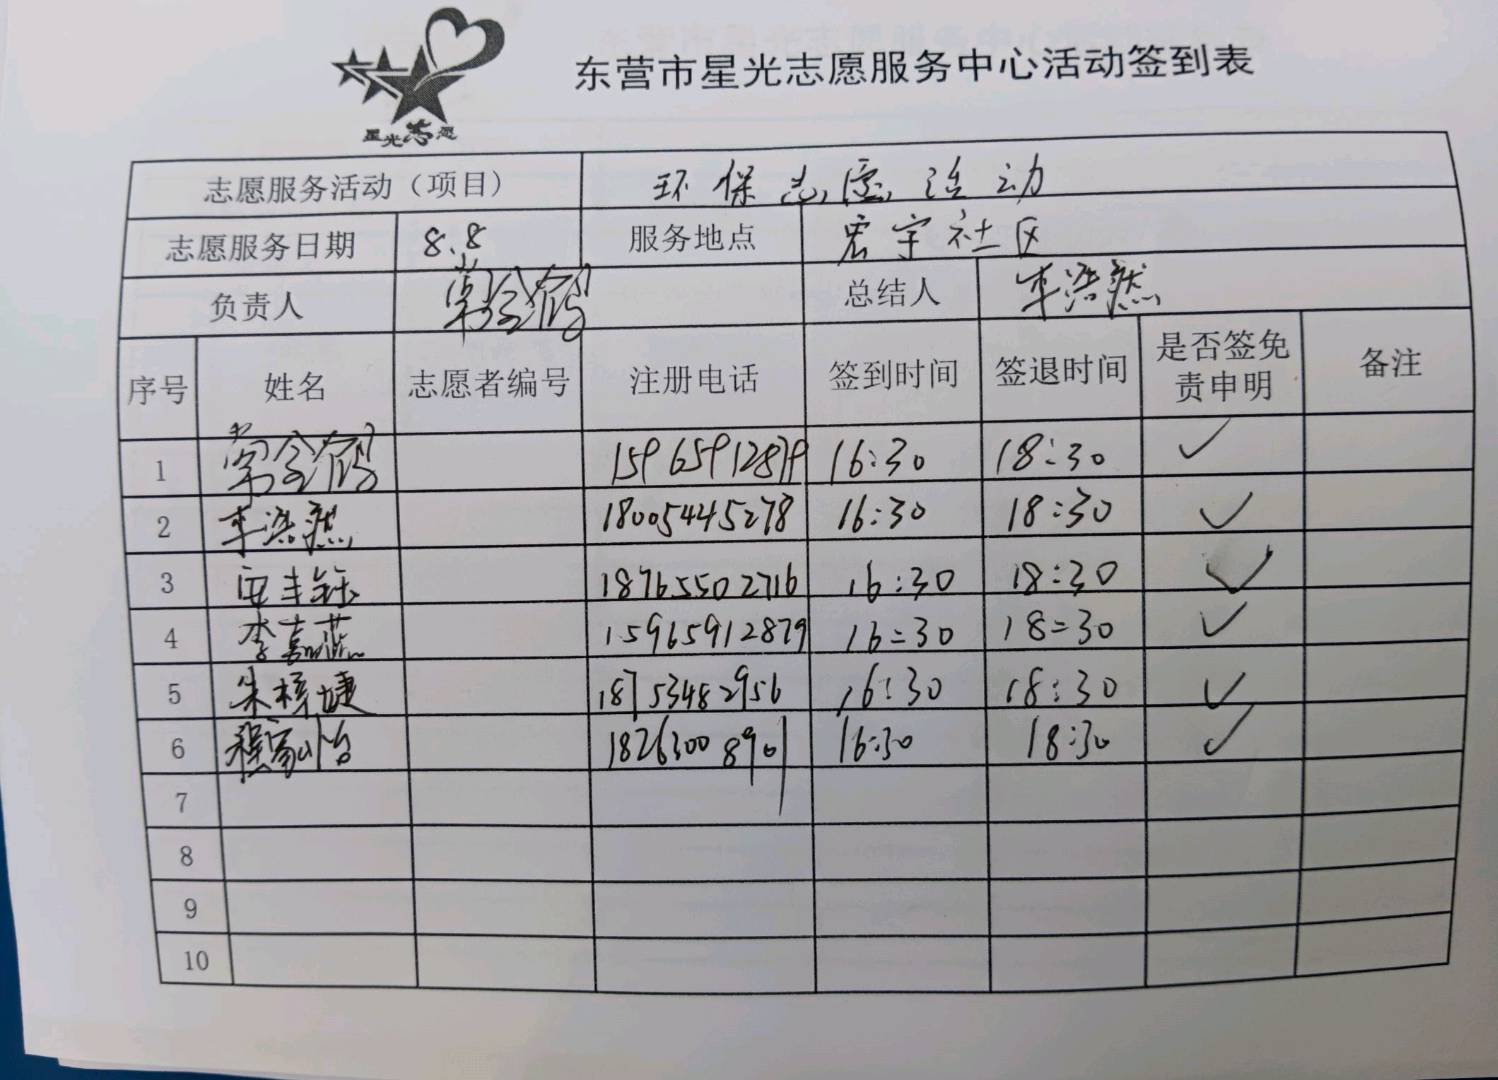 星光志愿
东营市星光志愿服务中心活动签到表
志愿服务活动（项目） 环保志愿活动
志愿服务日期 8.8 服务地点 宏宇社区
负责人 总结人 李浩然
序号 姓名 志愿者编号 注册电话 签到时间 签退时间 是否签免责申明 备注
1 15965912879 16:30 18:30 ✓
2 李浩然 18005445278 16:30 18:30 ✓
3 18765502716 16:30 18:30 ✓
4 李嘉 15965912879 16:30 18:30 ✓
5 朱梓婕 18753482956 16:30 18:30 ✓
6 程家怡 18263008901 16:30 18:30 ✓
7
8
9
10